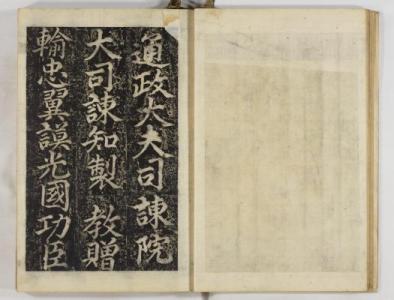 通政大夫司諫院
大司諫知製 教贈
輸忠翼謨光國功臣